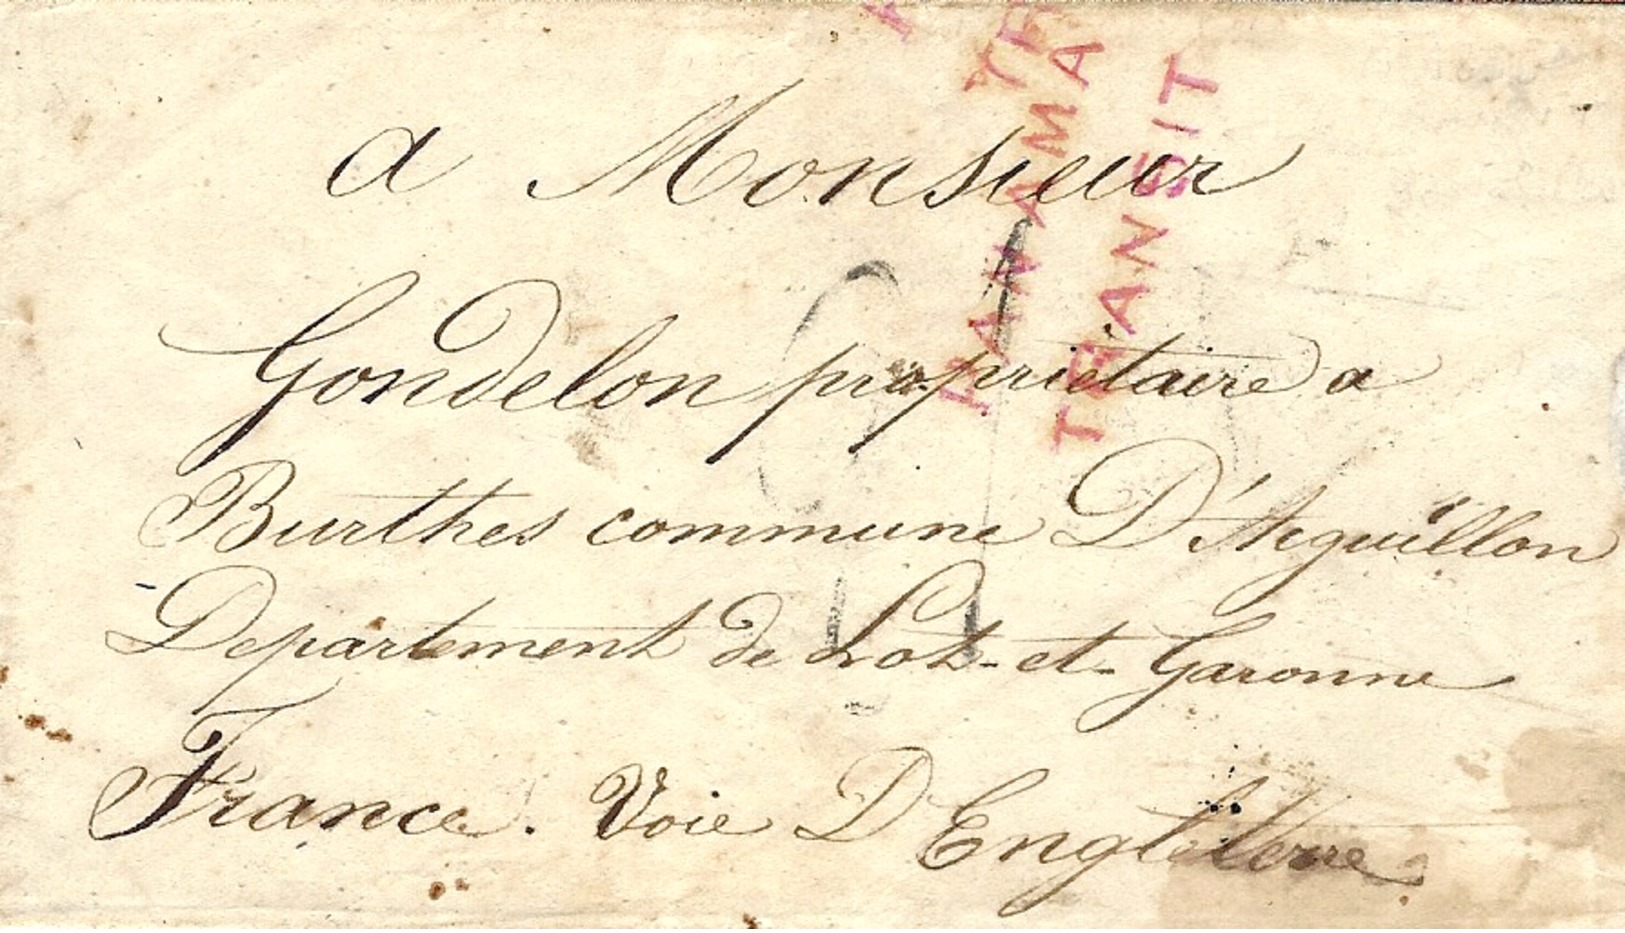 a Monsieur
Gondelon propriétaire a
Burthes commune D'Aiguillon
Departement de Lot-et-Garonne
France. Voie D Engleterre
PANAMA
TRANSIT